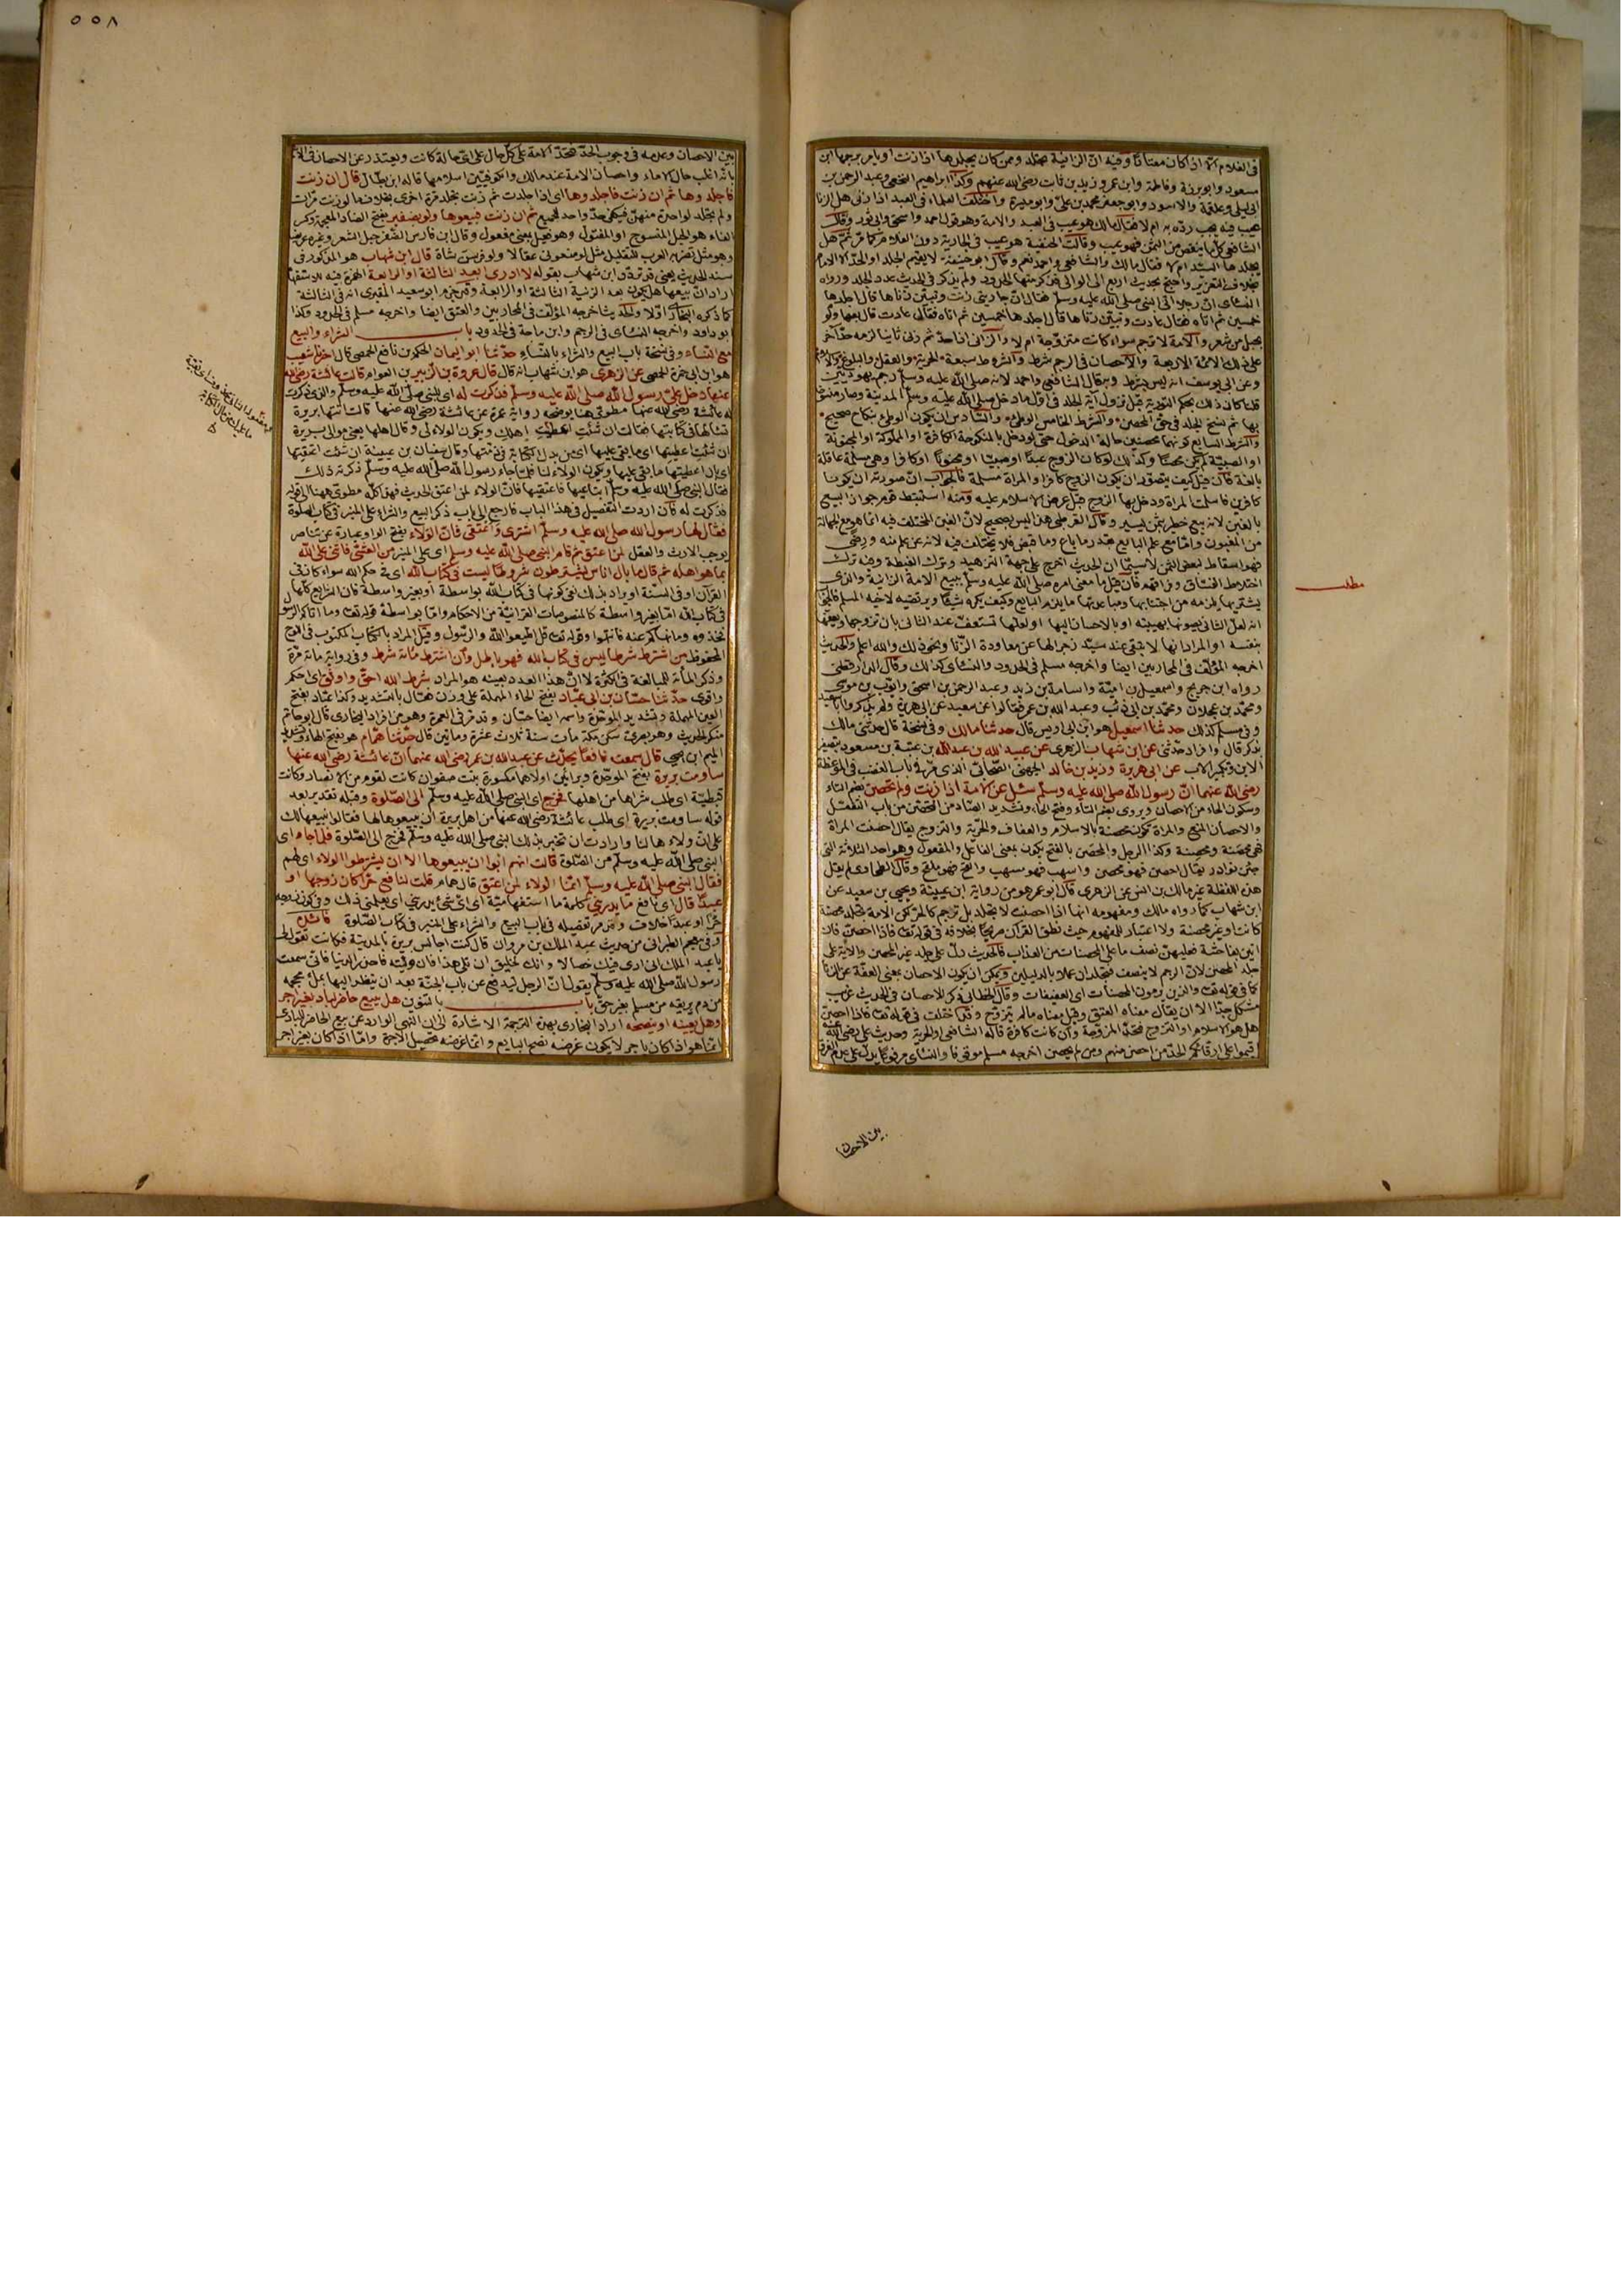 في الغلام الا اذا كان معتادا وفيه ان الزانية تجلد وممن كان يجلدها اذا زنت او يامر برجمها ابن
مسعود وابو برزة وفاطمة وابن عمر وزيد بن ثابت رضي الله عنهم وكذا ابراهيم النخعي وعبد الرحمن بن
ابي ليلى وعلقمة والاسود وابو جعفر محمد بن علي وابو ميسرة واختلف العلماء في العبد اذا زنى هل الزنا
عيب فيه يجب رده به ام لا فقال مالك هو عيب في العبد والامة وهو قول احمد واسحق وابي ثور وقال
الشافعي كل ما ينقص من الثمن فهو عيب وقالت الحنفية هو عيب في الجارية دون الغلام كما مر ثم هل
يجلدها السيد ام لا فقال مالك والشافعي واحمد نعم وقال ابو حنيفة لا يقيم الجلد او الحد الا الامام
بخلاف التعزير واحتج بحديث اربع الى الوالي فذكر منها الحدود ولم يذكر في الحديث عدد الجلد وروى
النسائي ان رجلا اتى النبي صلى الله عليه وسلم فقال ان جاريتي زنت وتبين زناها قال اجلدها
خمسين ثم اتاه فقال عادت وتبين زناها قال اجلدها خمسين ثم اتاه فقال عادت قال بعها ولو
بحبل من شعر والامة لا ترجم سواء كانت متزوجة ام لا والزاني اذا حد ثم زنى ثانيا لزمه حد آخر
على ذلك الائمة الاربعة والاحصان في الرجم شرط والشروط سبعة الحرية والعقل والبلوغ والاسلام
وعن ابي يوسف انه ليس بشرط وبه قال الشافعي واحمد لانه صلى الله عليه وسلم رجم يهوديين
قلنا كان ذلك بحكم التورية قبل نزول آية الجلد في اول ما دخل صلى الله عليه وسلم المدينة وصار منسوخا
بها ثم نسخ الجلد في حق المحصن والشرط الخامس الوطئ والسادس ان يكون الوطئ بنكاح صحيح
والشرط السابع كونهما محصنين حالة الدخول حتى لو دخل بالمنكوحة الكافرة او المملوكة او المجنونة
او الصبية لم يكن محصنا وكذلك لو كان الزوج عبدا او صبيا او مجنونا او كافرا وهي مسلمة عاقلة
بالغة فان قيل كيف يتصور ان يكون الزوج كافرا والمراة مسلمة فالجواب ان صورته ان يكونا
كافرين فاسلمت المراة ودخل بها الزوج قبل عرض الاسلام عليه ومنه استنبط قوم جواز البيع
بالغبن لانه بيع خطير بثمن يسير وقال القرطبي هذا ليس بصحيح لان الغبن المختلف فيه انما هو مع الجهالة
من المغبون واما مع علم البايع بقدر ما باع وما قبض فلا يختلف فيه لانه عن علم منه ورضى
فهو اسقاط لبعض الثمن لا سيما ان الحديث اخرج على جهة التزهيد وترك الغبطة وفيه ترك
اختلاط الفساق وفراقهم فان قيل ما معنى امره صلى الله عليه وسلم ببيع الامة الزانية والذي
يشتريها يلزمه من اجتنابها ومباعدتها ما يلزم البايع وكيف يكره شيئا ويرتضيه لاخيه المسلم فالجواب
انه لعل الثاني يصونها بهيبته او بالاحسان اليها او لعلها تستعف عند الثاني بان يزوجها او يعفها
بنفسه او المراد انها لا تبقى عند سيد زجرا لها عن معاودة الزنا ونحو ذلك والله اعلم والحديث
اخرجه المؤلف في المحاربين ايضا واخرجه مسلم في الحدود والنسائي كذلك وقال الدارقطني
رواه ابن جريج واسمعيل بن امية واسامة بن زيد وعبد الرحمن بن اسحق وايوب بن موسى
ومحمد بن عجلان ومحمد بن ابي ذئب وعبد الله بن عمر فقالوا عن سعيد عن ابي هريرة ولم يذكروا ابا سعيد
وفي مسلم كذلك حدثنا اسمعيل هو ابن ابي اويس قال حدثنا مالك وفي نسخة قال حدثني مالك
بذكر قال وافراد حدثني عن ابن شهاب الزهري عن عبيد الله بن عبد الله بن عتبة بن مسعود بتصغير
الابن وتكبير الاب عن ابي هريرة وزيد بن خالد الجهني الصحابي الذي مر في باب الغضب في الموعظة
رضي الله عنهما ان رسول الله صلى الله عليه وسلم سئل عن الامة اذا زنت ولم تحصن بضم التاء
وسكون الحاء من الاحصان ويروى بضم التاء وفتح الحاء وتشديد الصاد من التحصن من باب التفعل
والاحصان المنع والمراة تكون محصنة بالاسلام والعفاف والحرية والتزوج يقال احصنت المراة
فهي محصنة ومحصنة وكذا الرجل والمحصن بالفتح يكون بمعنى الفاعل والمفعول وهو احد الثلاثة التي
جئن نوادر يقال احصن فهو محصن واسهب فهو مسهب والفج فهو ملفج وقال الطحاوي لم يقل
هذه اللفظة غير مالك بن انس عن الزهري قال ابو عمر هو من رواية ابن عيينة ويحيى بن سعيد عن
ابن شهاب كما رواه مالك ومفهومه انها اذا احصنت لا تجلد بل ترجم كالحرة لكن الامة تجلد محصنة
كانت او غير محصنة ولا اعتبار للمفهوم حيث نطق القرآن صريحا بخلافه في قوله تعالى فاذا احصن فان
اتين بفاحشة فعليهن نصف ما على المحصنات من العذاب فالحديث دل على جلد غير المحصن والآية على
جلد المحصن لان الرجم لا ينصف فتجلدان عملا بالدليلين ويمكن ان يكون الاحصان بمعنى العفة عن الزنا
كما في قوله تعالى والذين يرمون المحصنات اي العفيفات وقال الخطابي ذكر الاحصان في الحديث غريب
مشكل جدا الا ان يقال معناه العتق وقيل معناه ما لم يتزوج وقد اختلف في قوله تعالى فاذا احصن
هل هو الاسلام او التزوج فتحد المزوجة وان كانت كافرة قاله الشافعي او الحرية وحديث علي رضي الله عنه
اقيموا على ارقائكم الحد من احصن منهم ومن لم يحصن اخرجه مسلم موقوفا والنسائي مرفوعا يدل على عدم الفرق
بين الاحصان
مطلب
٥٥٨
بين الاحصان وعدمه في وجوب الحد فتحد الامة على كل حال على اي حالة كانت ويعتذر عن الاحصان في الآية
بانه اغلب حال الاماء واحصان الامة عند مالك والكوفيين اسلامها قاله ابن بطال قال ان زنت
فاجلدوها ثم ان زنت فاجلدوها اي اذا جلدت ثم زنت تجلد مرة اخرى بخلاف ما لو زنت مرات
ولم تجلد لواحدة منهن فيكفي حد واحد للجميع ثم ان زنت فبيعوها ولو بضفير بفتح الضاد المعجمة وكسر
الفاء هو الحبل المنسوج او المفتول وهو فعيل بمعنى مفعول وقال ابن فارس الضفر حبل الشعر وغيره عريضا
وهو مثل تضربه العرب للتقليل مثل لو منعوني عقالا ولو فرسن شاة قال ابن شهاب هو المذكور في
سند الحديث يعني قد تردد ابن شهاب بقوله لا ادري ابعد الثالثة او الرابعة الهمزة فيه للاستفهام
اراد ان بيعها هل يكون بعد الزنية الثالثة او الرابعة وقد جزم ابو سعيد المقبري انه في الثالثة
كما ذكره البخاري اولا والحديث اخرجه المؤلف في المحاربين والعتق ايضا واخرجه مسلم في الحدود وكذا
ابو داود واخرجه النسائي في الرجم وابن ماجة في الحدود باب الشراء والبيع
مع النساء وفي نسخة باب البيع والشراء بالنساء حدثنا ابو اليمان الحكم بن نافع الحمصي قال اخبرنا شعيب
هو ابن ابي حمزة الحمصي عن الزهري هو ابن شهاب انه قال قال عروة بن الزبير بن العوام قالت عائشة رضي الله
عنها دخل علي رسول الله صلى الله عليه وسلم فذكرت له اي للنبي صلى الله عليه وسلم والذي ذكرت
له عائشة رضي الله عنها مطوي هنا يوضحه رواية عمرة عن عائشة رضي الله عنها قالت اتتها بريرة
تسألها في كتابتها فقالت ان شئت اعطيت اهلك ويكون الولاء لي وقال اهلها يعني موالي بريرة
ان شئت اعطيتها اي ما بقي عليها اي من بدل الكتابة في ذمتها وقال سفيان بن عيينة ان شئت اعتقتها
اي بدل اعطيتها ما بقي عليها ويكون الولاء لنا فلما جاء رسول الله صلى الله عليه وسلم ذكرته ذلك
فقال النبي صلى الله عليه وسلم ابتاعيها فاعتقيها فان الولاء لمن اعتق الحديث فهذا كله مطوي ههنا الى قوله
فذكرت له فان اردت التفصيل في هذا الباب فارجع الى باب ذكر البيع والشراء على المنبر في كتاب الصلوة
فقال لها رسول الله صلى الله عليه وسلم اشتري واعتقي فان الولاء بفتح الواو عبارة عن تناصر
يوجب الارث والعقل لمن اعتق ثم قام النبي صلى الله عليه وسلم اي على المنبر من العشي فاثنى على الله
بما هو اهله ثم قال ما بال اناس يشترطون شروطا ليست في كتاب الله اي في حكم الله سواء كان في
القرآن او في السنة او يراد بذلك نفي كونها في كتاب الله بواسطة او بغير واسطة فان الشرايع كلها
في كتاب الله اما بغير واسطة كالمنصوصات القرآنية من الاحكام واما بواسطة قوله تعالى وما اتاكم الرسول
فخذوه وما نهاكم عنه فانتهوا وقوله تعالى قل اطيعوا الله والرسول وقيل المراد بالكتاب المكتوب في اللوح
المحفوظ من اشترط شرطا ليس في كتاب الله فهو باطل وان اشترط مائة شرط وفي رواية مائة مرة
وذكر المائة للمبالغة في الكثرة لا ان هذا العدد بعينه هو المراد شرط الله احق واوثق اي احكم
واقوى حدثنا حسان بن ابي عباد بفتح الحاء المهملة على وزن فعال بالتشديد وكذا عباد بفتح
العين المهملة وتشديد الموحدة واسمه ايضا حسان وقد مر في العمرة وهو من افراد البخاري قال ابو حاتم
منكر الحديث وهو بصري سكن مكة مات سنة ثلاث عشرة ومايتين قال حدثنا همام هو بفتح الهاء وتشديد
الميم ابن يحيى قال سمعت نافعا يحدث عن عبد الله بن عمر رضي الله عنهما ان عائشة رضي الله عنها
ساومت بريرة بفتح الموحدة وبرائين اولاهما مكسورة بنت صفوان كانت لقوم من الانصار وكانت
قبطية اي طلب شراها من اهلها فخرج اي النبي صلى الله عليه وسلم الى الصلوة وقبله تقدير بعد
قوله ساومت بريرة اي طلب عائشة رضي الله عنها من اهل بريرة ان يبيعوها لها فقالوا نبيعها لك
على ان ولاءها لنا وارادت ان تخبر بذلك النبي صلى الله عليه وسلم فخرج الى الصلوة فلما جاء اي
النبي صلى الله عليه وسلم من الصلوة قالت انهم ابوا ان يبيعوها الا ان يشترطوا الولاء اي لهم
فقال النبي صلى الله عليه وسلم انما الولاء لمن اعتق قال همام قلت لنافع حرا كان زوجها او
عبدا قال اي نافع ما يدريني كلمة ما استفهامية اي اي شيء يدريني اي يعلمني ذلك وفي كون زوجه
حرا او عبدا خلاف وقد مر تفصيله في باب البيع والشراء على المنبر في كتاب الصلوة فائدة
وفي معجم الطبراني من حديث عبد الملك بن مروان قال كنت اجالس بريرة بالمدينة فكانت تقول لي
يا عبد الملك اني ارى فيك خصالا وانك لخليق ان تلي هذا فان وليته فاحذر الدنيا فاني سمعت
رسول الله صلى الله عليه وسلم يقول ان الرجل ليدفع عن باب الجنة بعد ان ينظر اليها بملئ محجمه
من دم يريقه من مسلم بغير حق باب بالتنوين هل يبيع حاضر لباد بغير اجر
وهل يعينه او ينصحه اراد البخاري بهذه الترجمة الاشارة الى ان النهي الوارد عن بيع الحاضر للبادي
انما هو اذا كان باجر لا يكون غرضه نصح البايع وانما غرضه تحصيل الاجرة واما اذا كان بغير اجر